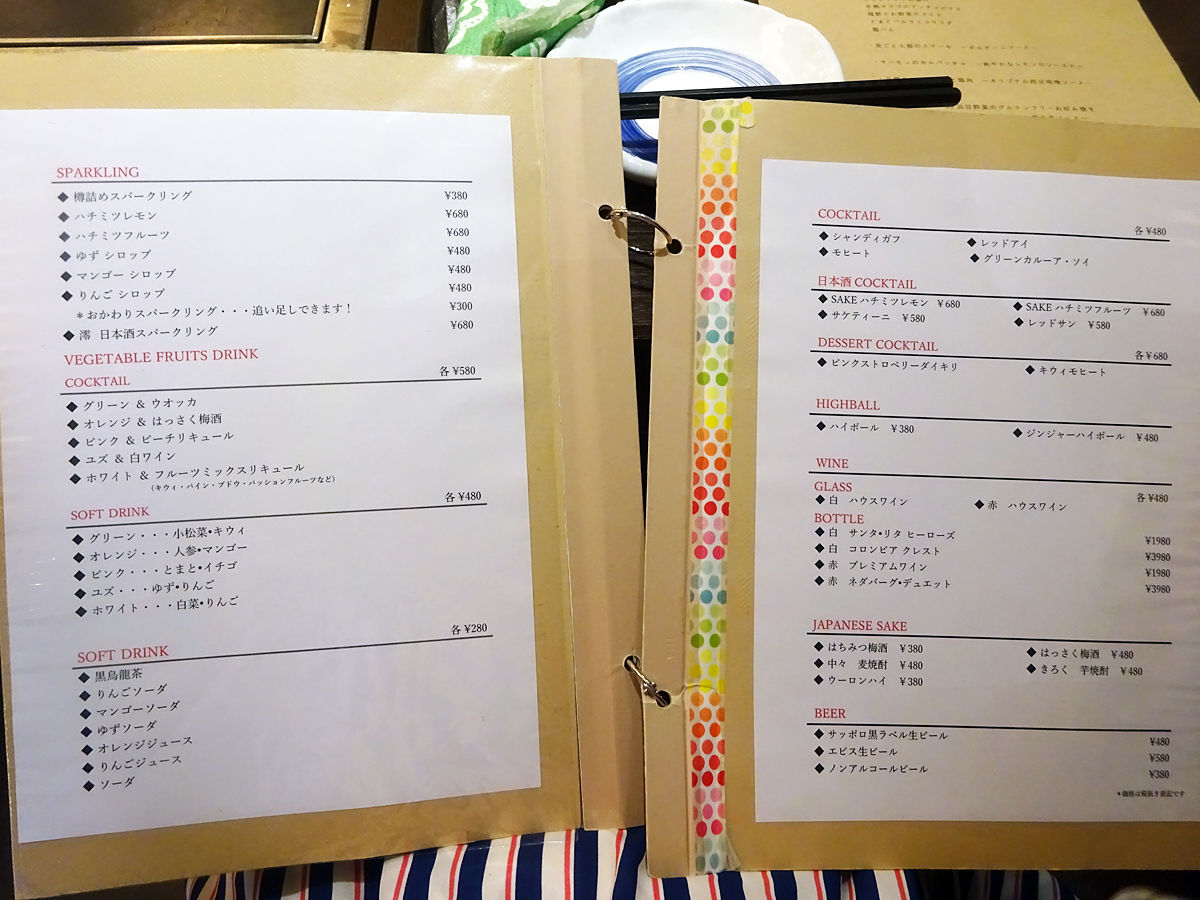 SPARKLING
◆ 樽詰めスパークリング ¥380
◆ ハチミツレモン ¥680
◆ ハチミツフルーツ ¥680
◆ ゆず シロップ ¥480
◆ マンゴー シロップ ¥480
◆ りんご シロップ ¥480
＊おかわりスパークリング・・・追い足しできます！ ¥300
◆ 澪 日本酒スパークリング ¥680
VEGETABLE FRUITS DRINK
COCKTAIL 各 ¥580
◆ グリーン ＆ ウオッカ
◆ オレンジ ＆ はっさく梅酒
◆ ピンク ＆ ピーチリキュール
◆ ユズ ＆ 白ワイン
◆ ホワイト ＆ フルーツミックスリキュール
（キウィ・パイン・ブドウ・パッションフルーツなど）
SOFT DRINK 各 ¥480
◆ グリーン・・・小松菜•キウィ
◆ オレンジ・・・人参•マンゴー
◆ ピンク・・・とまと•イチゴ
◆ ユズ・・・ゆず•りんご
◆ ホワイト・・・白菜•りんご
SOFT DRINK 各 ¥280
◆ 黒烏龍茶
◆ りんごソーダ
◆ マンゴーソーダ
◆ ゆずソーダ
◆ オレンジジュース
◆ りんごジュース
◆ ソーダ
COCKTAIL 各 ¥480
◆ シャンディガフ ◆ レッドアイ
◆ モヒート ◆ グリーンカルーア・ソイ
日本酒 COCKTAIL
◆ SAKE ハチミツレモン ¥680 ◆ SAKE ハチミツフルーツ ¥680
◆ サケティーニ ¥580 ◆ レッドサン ¥580
DESSERT COCKTAIL 各 ¥680
◆ ピンクストロベリーダイキリ ◆ キウィモヒート
HIGHBALL
◆ ハイボール ¥380 ◆ ジンジャーハイボール ¥480
WINE
GLASS 各 ¥480
◆ 白 ハウスワイン ◆ 赤 ハウスワイン
BOTTLE
◆ 白 サンタ•リタ ヒーローズ ¥1980
◆ 白 コロンビア クレスト ¥3980
◆ 赤 プレミアムワイン ¥1980
◆ 赤 ネダバーグ•デュエット ¥3980
JAPANESE SAKE
◆ はちみつ梅酒 ¥380 ◆ はっさく梅酒 ¥480
◆ 中々 麦焼酎 ¥480 ◆ きろく 芋焼酎 ¥480
◆ ウーロンハイ ¥380
BEER
◆ サッポロ黒ラベル生ビール ¥480
◆ エビス生ビール ¥580
◆ ノンアルコールビール ¥380
＊価格は税抜き表記です